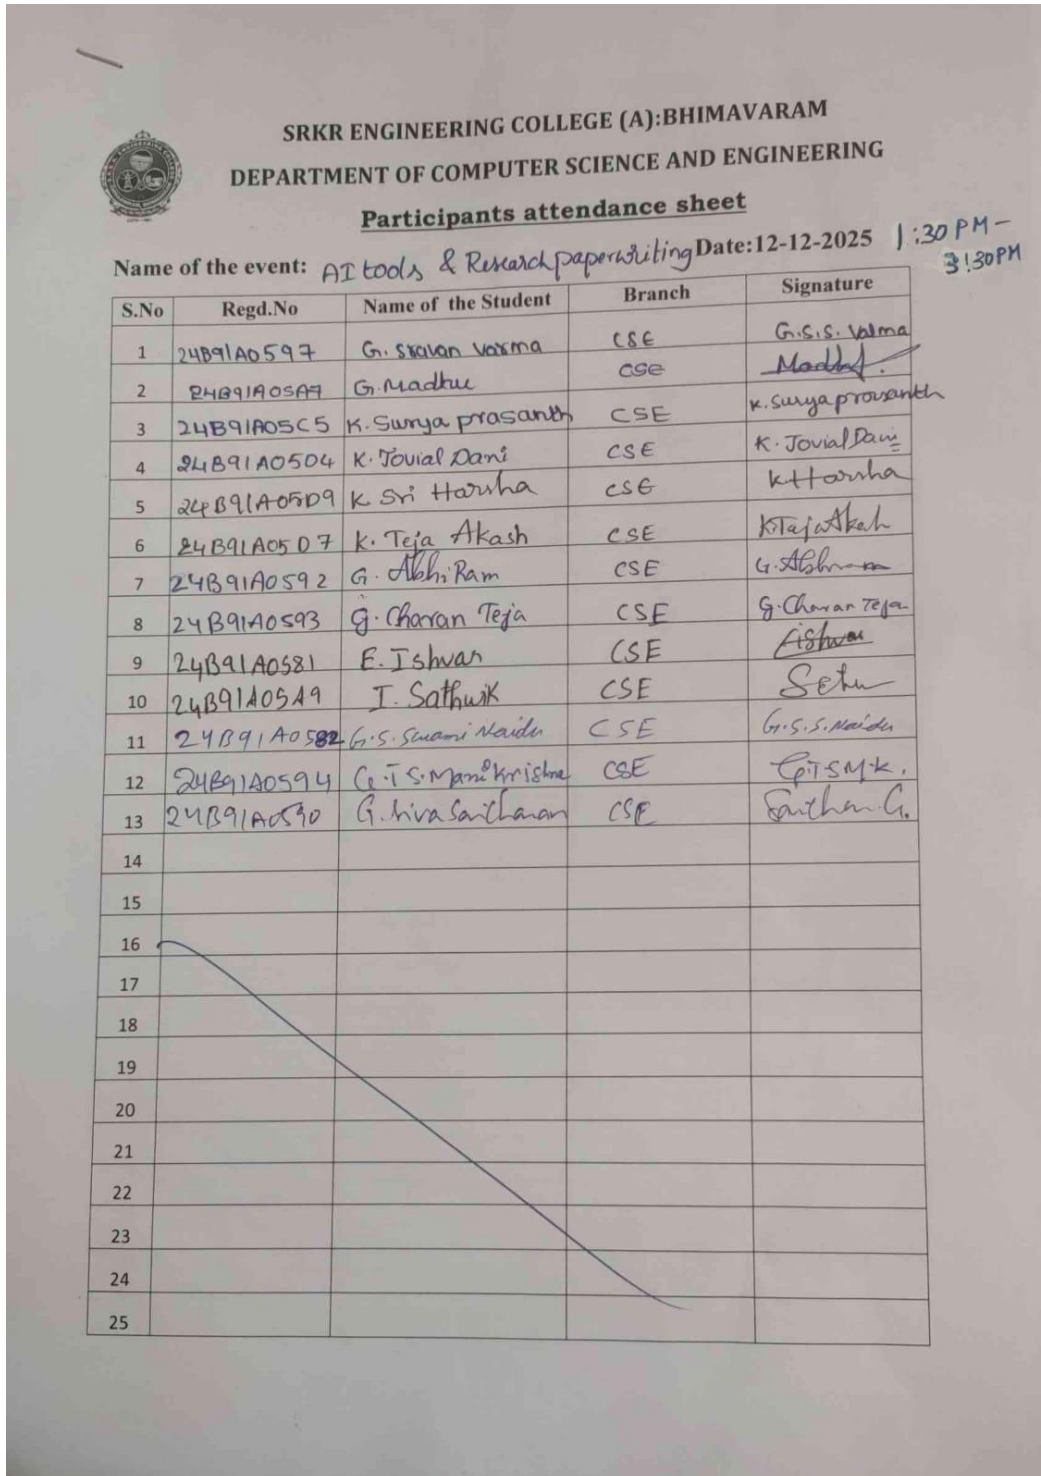 SRKR ENGINEERING COLLEGE (A):BHIMAVARAM
DEPARTMENT OF COMPUTER SCIENCE AND ENGINEERING
Participants attendance sheet
Name of the event: AI tools & Research paper writing Date:12-12-2025 1:30 PM -
3:30PM
S.No Regd.No Name of the Student Branch Signature
1 24B91A0597 G. Sravan Varma CSE G.S.S. Valma
2 24B91A05A7 G.Madhu CSE Madhu
3 24B91A05C5 K. Surya prasanth CSE K. Surya prasanth
4 24B91A05D4 K. Jovial Dani CSE K. Jovial Dani
5 24B91A05D9 K Sri Harsha CSE K Harsha
6 24B91A05D7 K. Teja Akash CSE K Teja Akash
7 24B91A0592 G. Abhi Ram CSE G. Abhiram
8 24B91A0593 G. Charan Teja CSE G. Charan Teja
9 24B91A0581 E. Ishwar CSE Eishwar
10 24B91A05A9 I. Sathwik CSE
11 24B91A0582 G.S. Swami Naidu CSE G.S.S. Naidu
12 24B91A0594 G.T S. Mani Krishna CSE G.T S M.K.
13 24B91A0590 G. Siva Santhanan CSE Santhan G.
14
15
16
17
18
19
20
21
22
23
24
25